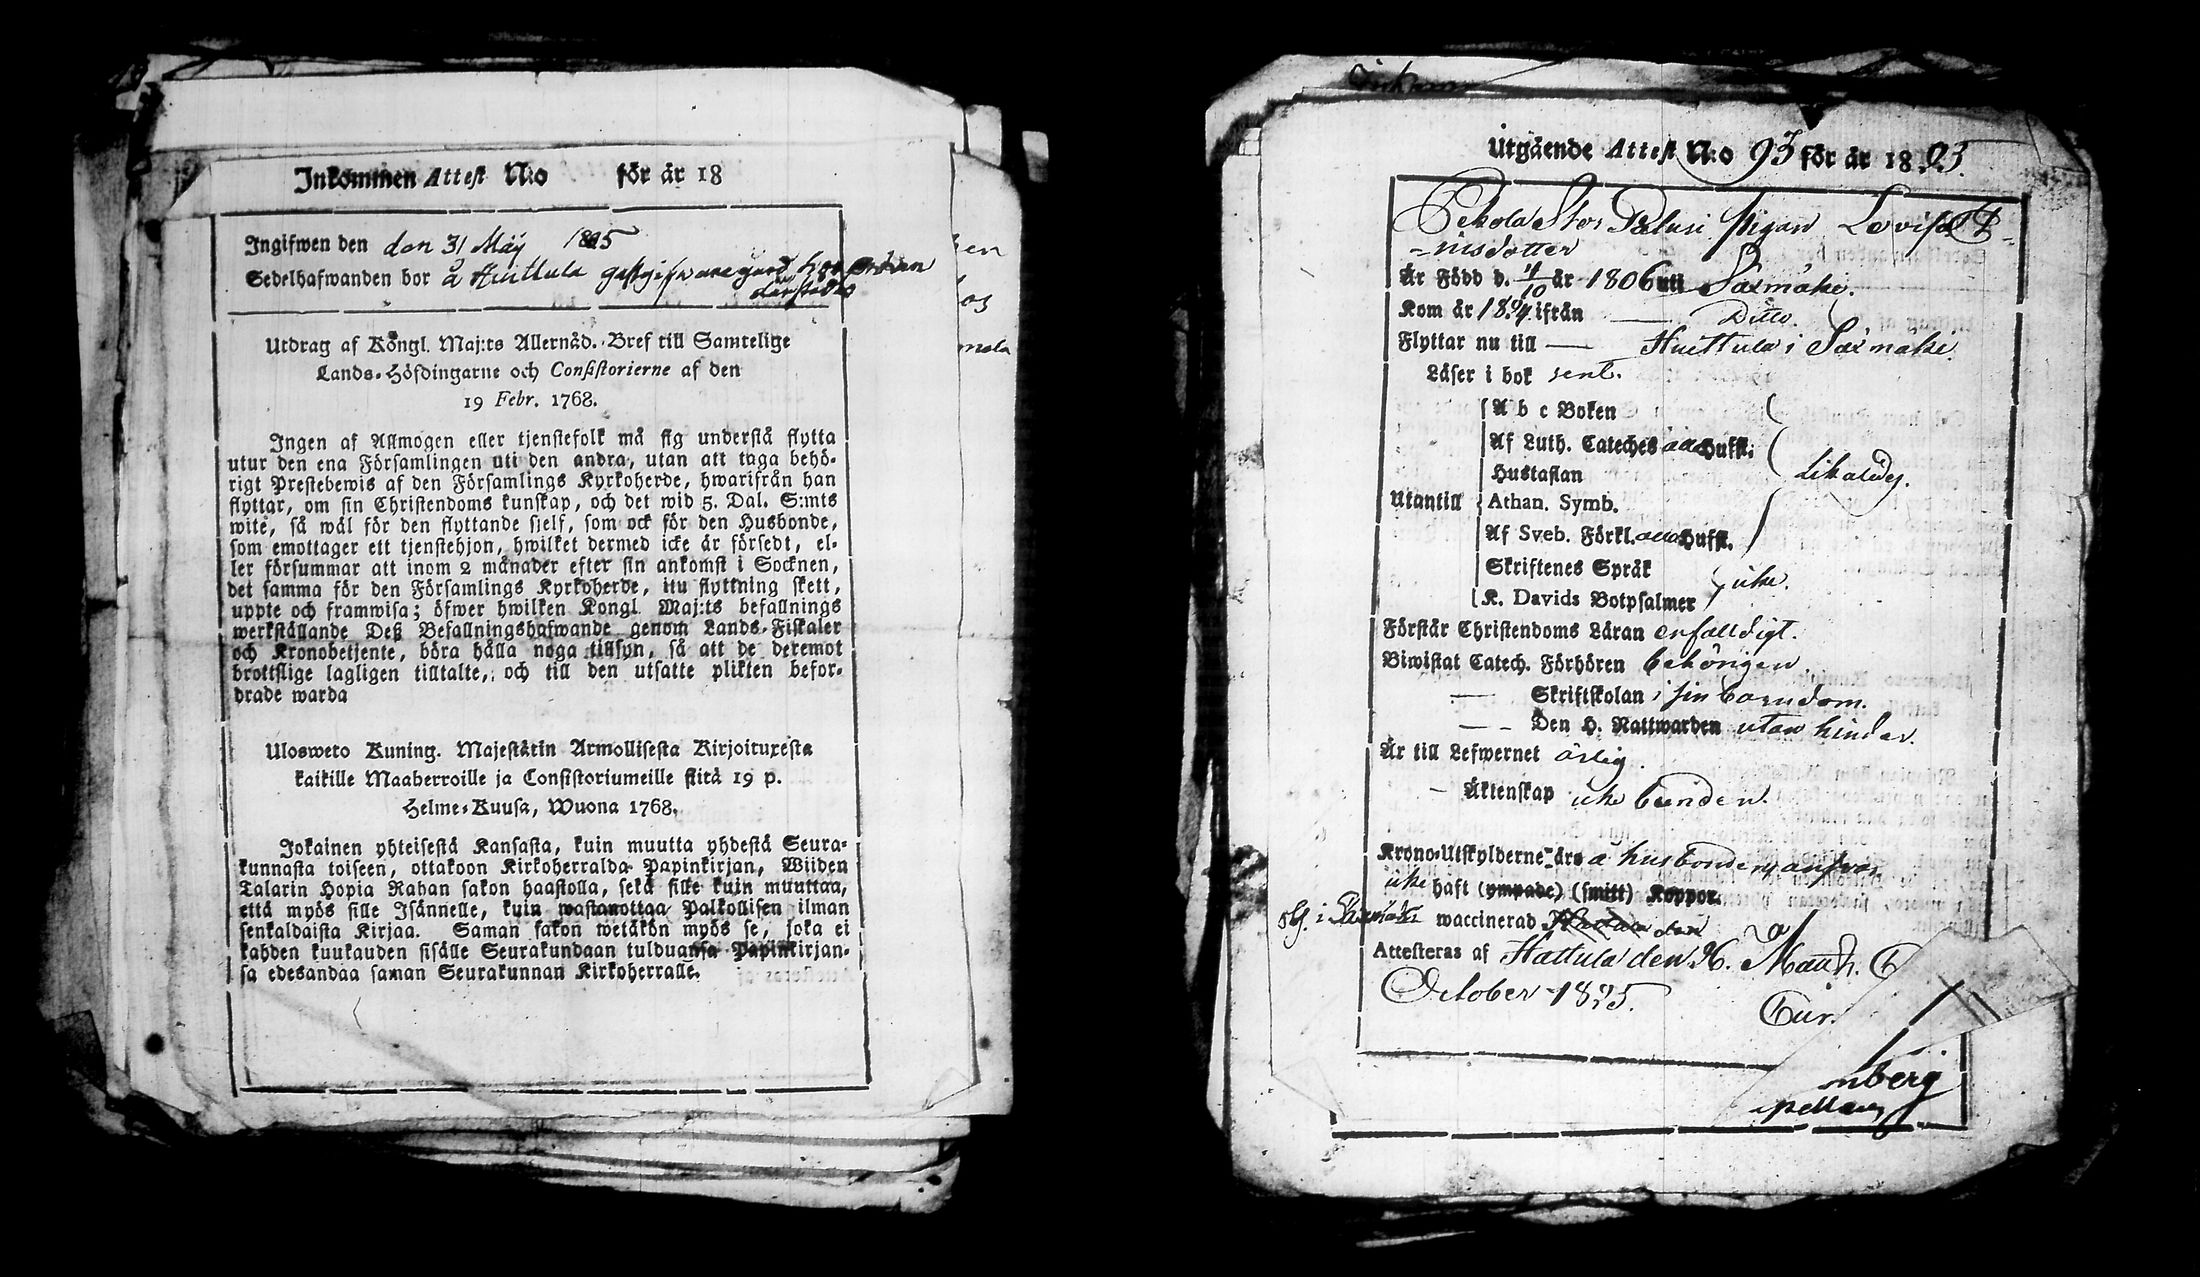 Inkommen Attest N:o för år 18
Ingifwen den den 31 Maij 1825
Sedelhafwanden bor å Huittula gästgifwaregård hos
Utdrag af Kongl. Maj:ts Allernåd. Bref till Samtelige
Lands-Höfdingarne och Consistorierne af den
19 Febr. 1768.
Ingen af Allmogen eller tjenstefolk må sig understå flytta
utur den ena Församlingen uti den andra, utan att taga behö-
rigt Prestebewis af den Församlings Kyrkoherde, hwarifrån han
flyttar, om sin Christendoms kunskap, och det wid 5. Dal. S:mts
wite, så wäl för den flyttande sjelf, som ock för den Husbonde,
som emottager ett tjenstehjon, hwilket dermed icke är försedt, el-
ler försummar att inom 2 månader efter sin ankomst i Socknen,
det samma för den Församlings Kyrkoherde, itu flyttning skett,
uppte och framwisa; öfwer hwilken Kongl Maj:ts befallnings
werkställande Deß Befallningshafwande genom Lands-Fiskaler
och Kronobetjente, böra hålla noga tillsyn, så att de deremot
brottslige lagligen tilltalte, och till den utsatte plikten befor-
drade warda
Ulosweto Kuning. Majestätin Armollisesta Kirjoituxesta
kaikille Maaherroille ja Consistoriumeille siitä 19 p.
Helme-Kuusa, Wuona 1768.
Jokainen yhteisestä Kansasta, kuin muutta yhdestä Seura-
kunnasta toiseen, ottakoon Kirkoherralda Papinkirjan, Wiiden
Talarin Hopia Rahan sakon haastolla, sekä sille kuin muuttaa,
että myös sille Isännelle, kuin wastanottaa Palkollisen ilman
senkaldaista Kirjaa. Saman sakon wetäkön myös se, joka ei
kahden kuukauden sisälle Seurakundaan tulduansa Papinkirjan-
sa edesandaa saman Seurakunnan Kirkoherralle.
Utgående Attest N:o 93 för år 1825.
Pekola Stor Palusi pigan Lovisa
Är Född d. 4/10 år 1806 uti Säxmäke.
Kom år 1824 ifrån — Ditto.
Flyttar nu till — Huittula i Säxmäki.
Läser i bok sent.
A b c Boken
Af Luth. Cateches alla Hufst.
Hustaflan likaledes.
Utantill Athan. Symb.
Af Sveb. Förkl. alla Hufst.
Skriftenes Språk
K. Davids Botpsalmer icke.
Förstår Christendoms Läran enfalldigt.
Biwistat Catech. Förhören behörigen.
— Skriftskolan i sin barndom.
— — Den H. Nattwarden utan hinder.
Är till Lefwernet ärlig.
— Äktenskap icke bunden.
Krono-Utskylderne äro å husbondens answar.
icke haft (ympade) (smitt) Koppor.
i Säxmäki waccinerad
Attesteras af Hattula den
October 1825.